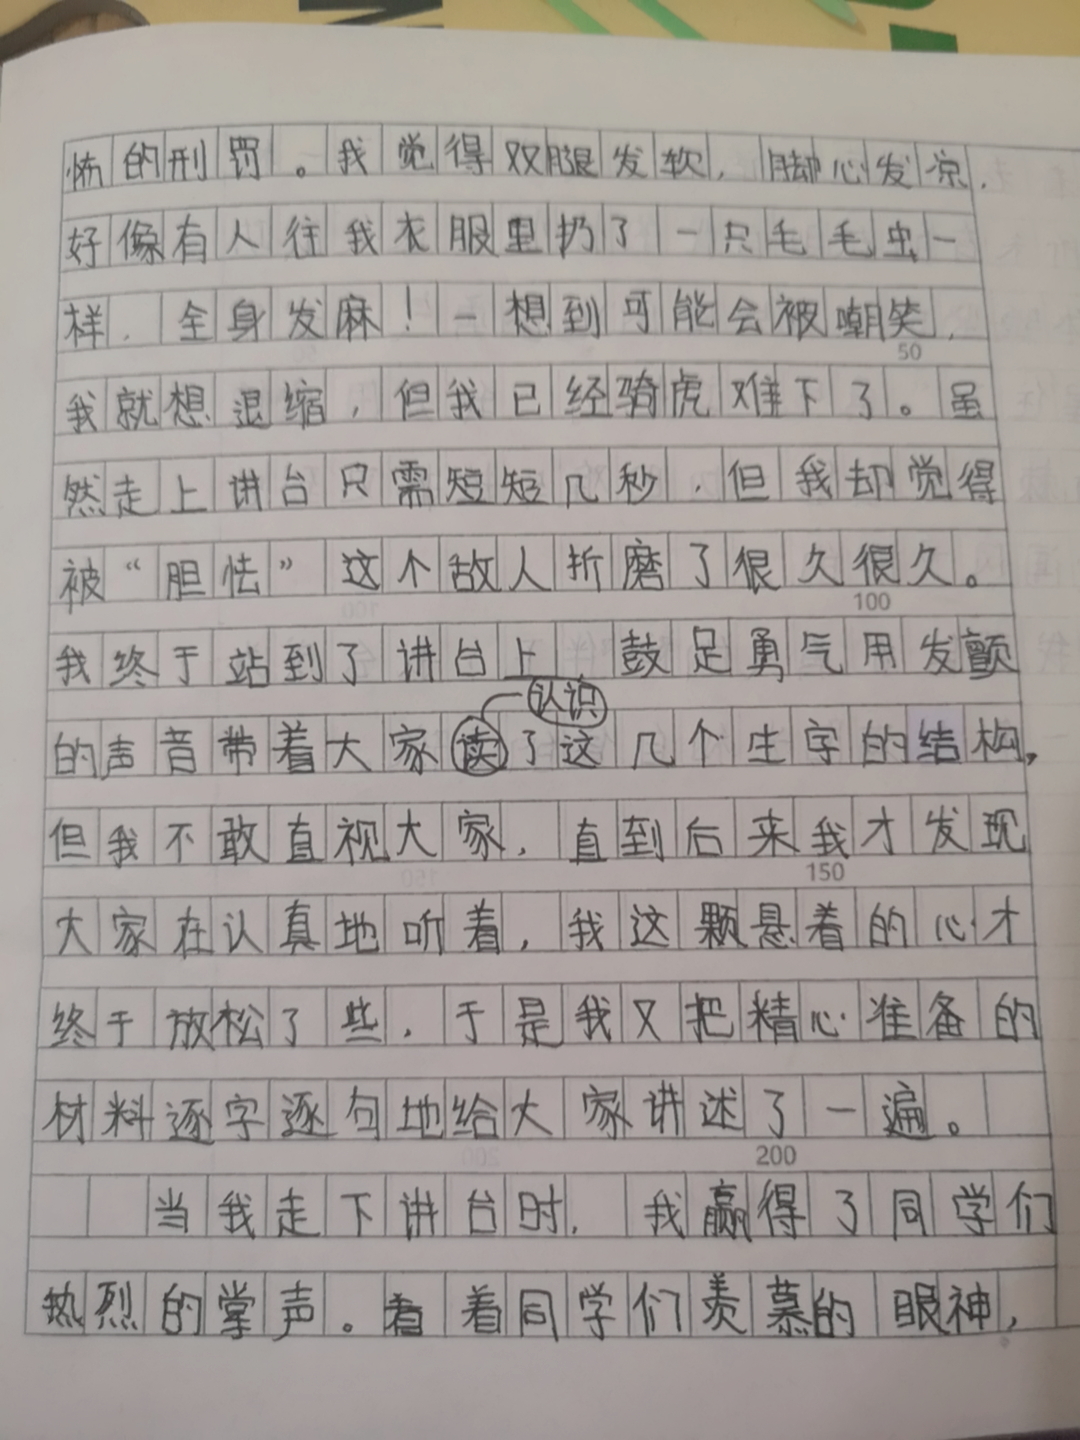 怖的刑罚。我觉得双腿发软，脚心发凉，
好像有人往我衣服里扔了一只毛毛虫一
样，全身发麻！一想到可能会被嘲笑，
50
我就想退缩，但我已经骑虎难下了。虽
然走上讲台只需短短几秒，但我却觉得
被“胆怯”这个敌人折磨了很久很久。
100
我终于站到了讲台上 鼓足勇气用发颤
认识
的声音带着大家读了这几个生字的结构，
但我不敢直视大家，直到后来我才发现
150
大家在认真地听着，我这颗悬着的心才
终于放松了些，于是我又把精心准备的
材料逐字逐句地给大家讲述了一遍。
200
当我走下讲台时，我赢得了同学们
热烈的掌声。看着同学们羡慕的眼神，